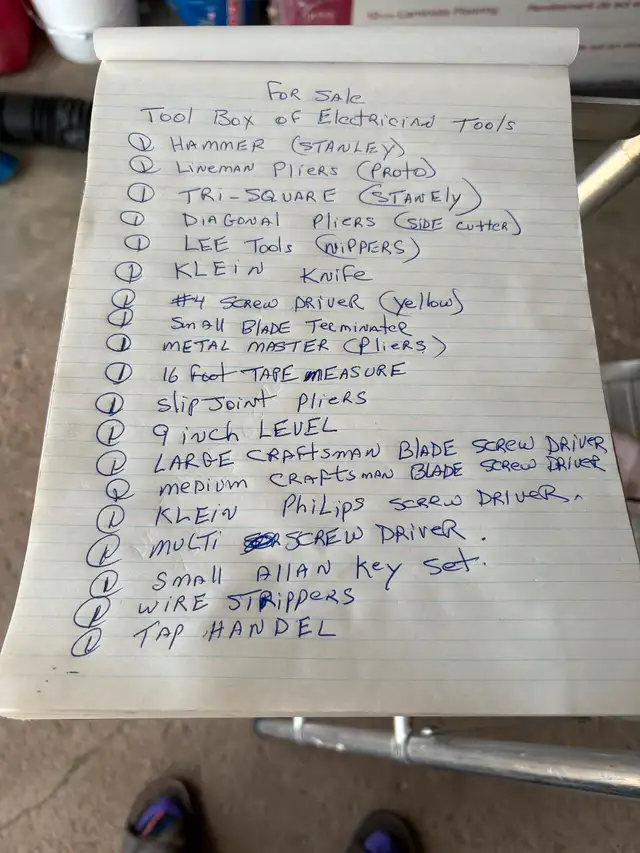 10mm Laminate Flooring
Revêtement de sol
FOR SAle
Tool Box of Electricians Tools
① HAMMER (STANLEY)
① LINEMAN PLIERS (PROTO)
① TRI-SQUARE (STANEly)
① DIAGONAL PLIERS (SIDE CUTTER)
① LEE Tools (NIPPERS)
① KLEIN KNIFE
① #4 SCREW DRIVER (yellow)
① Small BLADE TERMINATER
① METAL MASTER (PLIERS)
① 16 foot TAPE MEASURE
① SlIP JOINT PLIERS
① 9 inch LEVEL
① LARGE CRAFTSMAN BLADE SCREW DRIVER
① MEDIUM CRAFTSMAN BLADE SCREW DRIVER
① KLEIN PhiLips SCREW DRIVER.
① MULTI SCREW DRIVER.
① SMALL AllAN Key Set.
① WIRE STRIPPERS
① TAP HANDEL